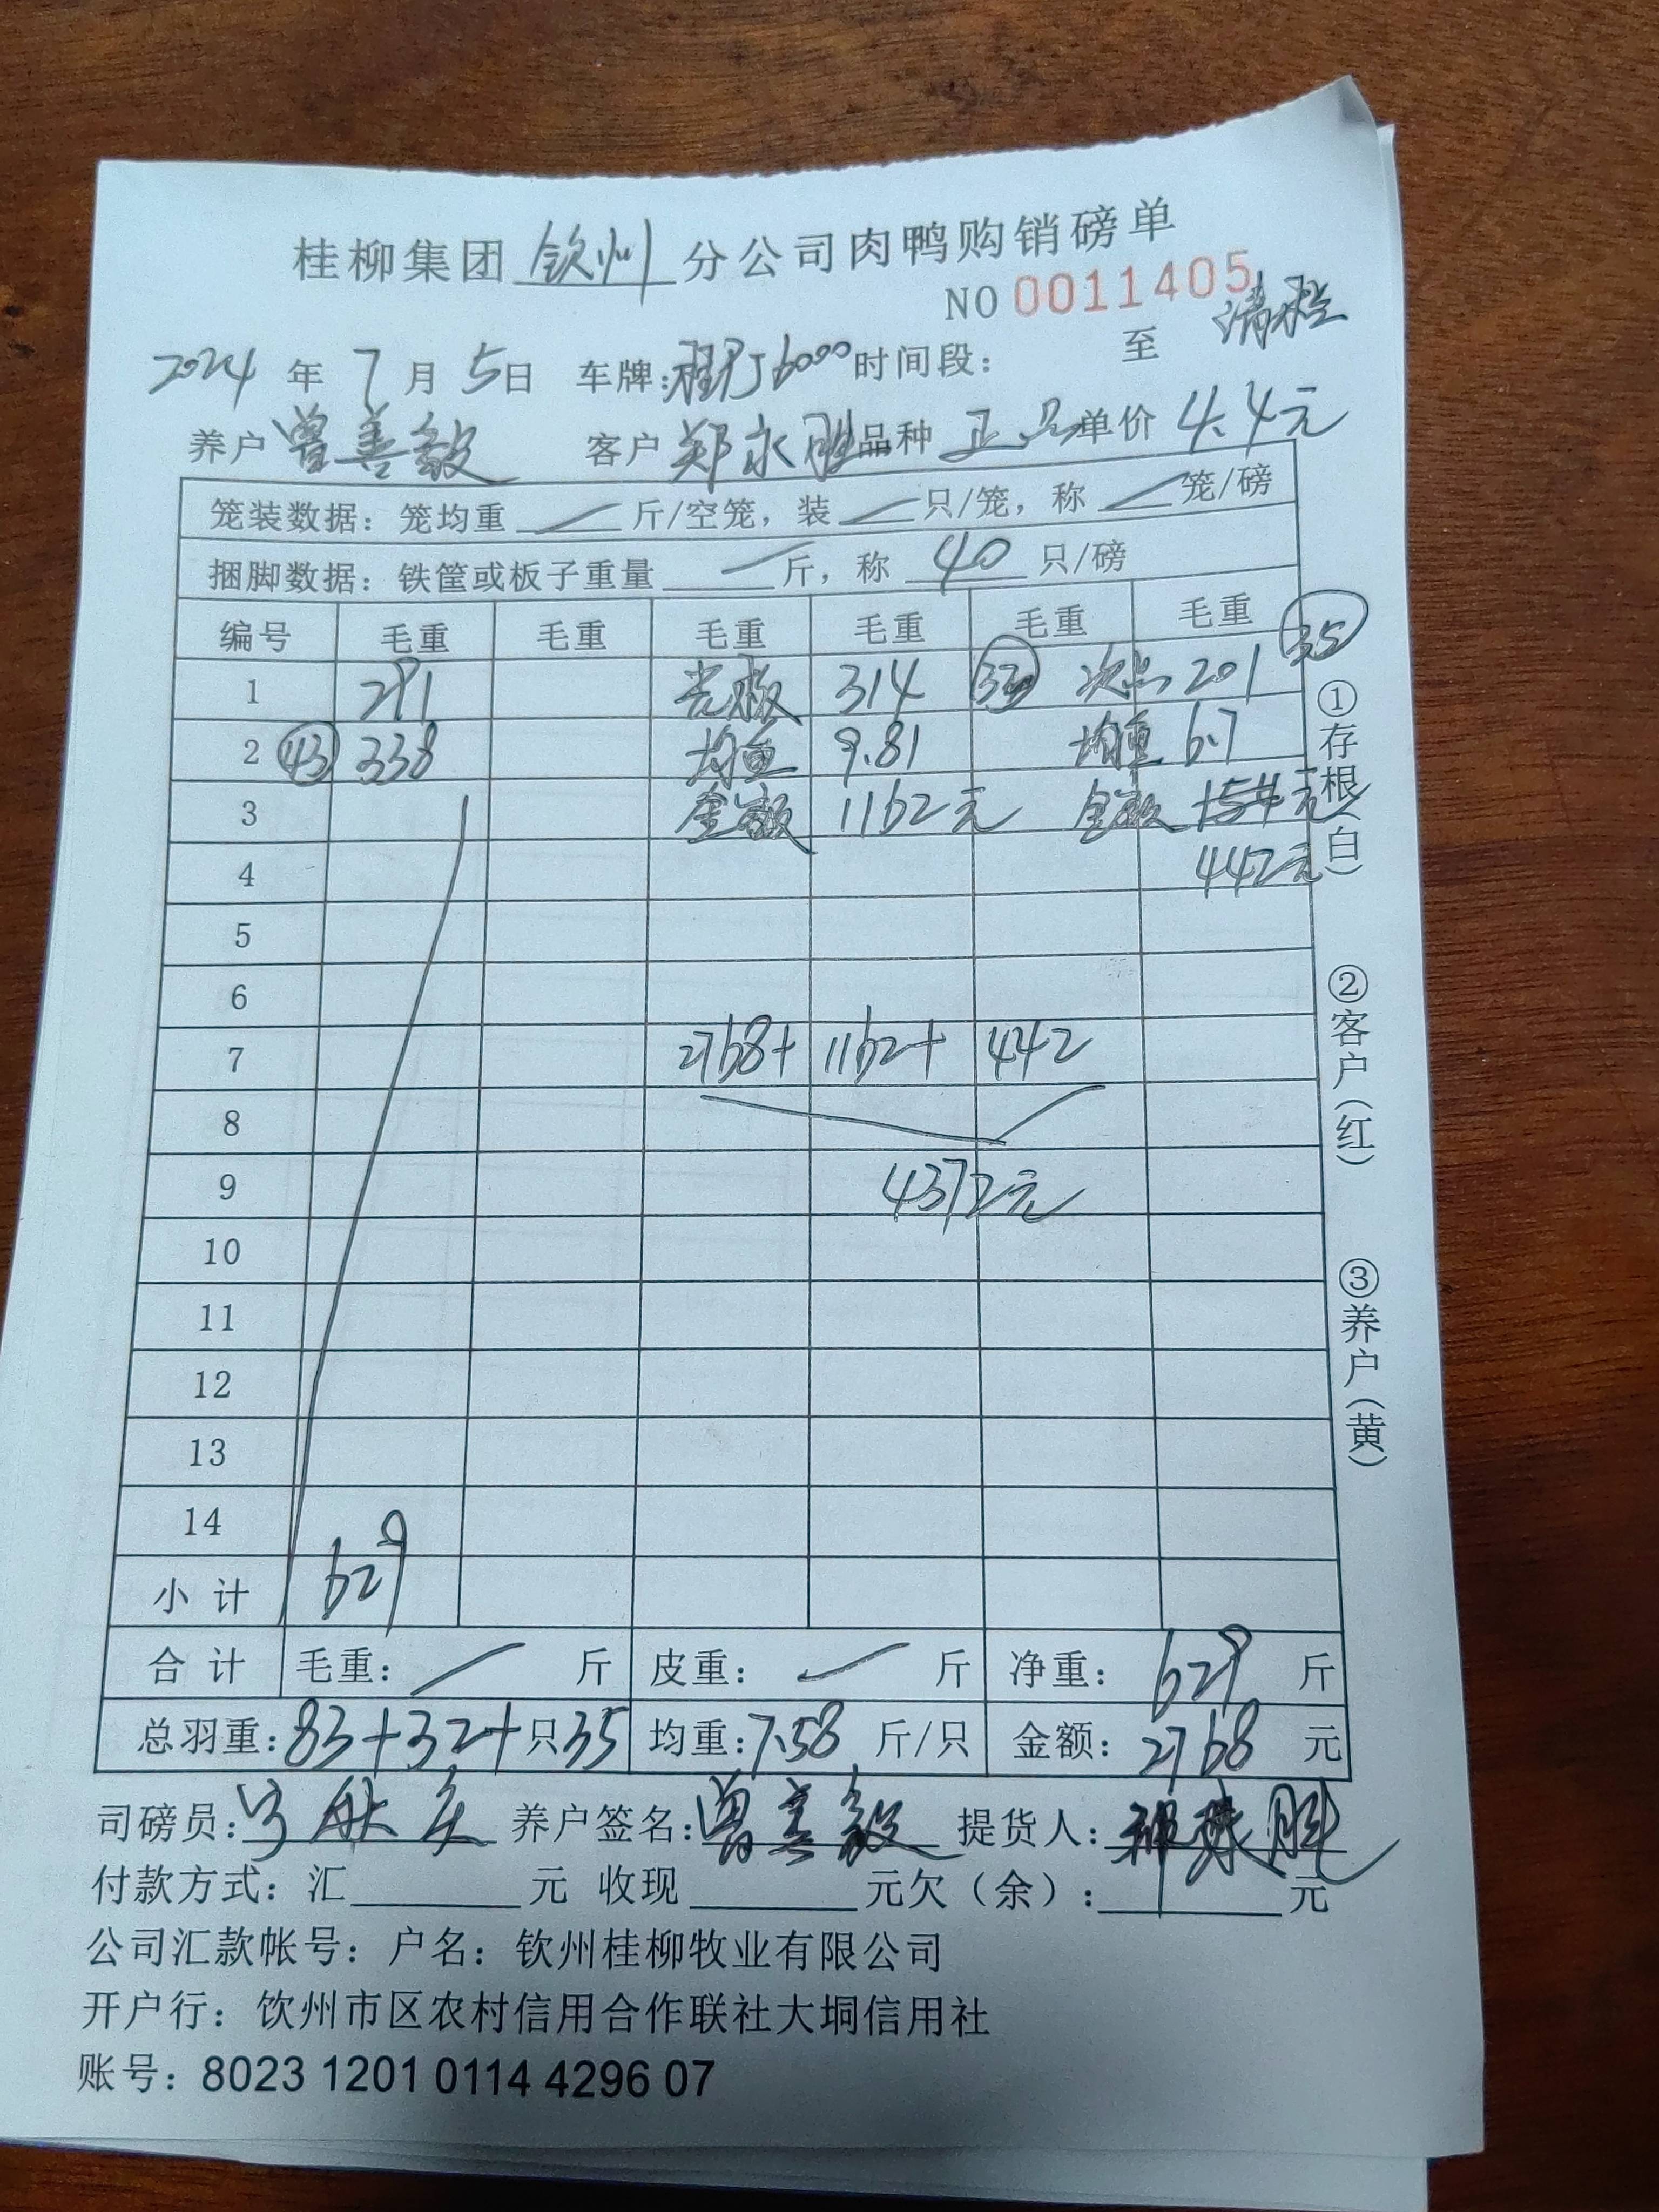 桂柳集团 钦州 分公司肉鸭购销磅单
NO 0011405
2024 年 7 月 5 日 车牌: 6000 时间段: 至
养户 曾善毅 客户 郑永胜 品种 正品 单价 4.4元
笼装数据: 笼均重 斤/空笼, 装 只/笼, 称 笼/磅
捆脚数据: 铁筐或板子重量 斤, 称 40 只/磅
编号 毛重 毛重 毛重 毛重 毛重 毛重 35
1 291 光板 314 次品 201
2 43 338 均重 9.81 均重 6.7
3 金额 1162元 金额 154元
4 442元
5
6
7 2768+ 1162+ 442
8
9 4372元
10
11
12
13
14
小计 629
合计 毛重: 斤 皮重: 斤 净重: 629 斤
总羽重: 83+32+ 只 35 均重: 7.58 斤/只 金额: 2768 元
司磅员: 养户签名: 曾善毅 提货人:
付款方式: 汇 元 收现 元欠(余): 元
公司汇款帐号: 户名: 钦州桂柳牧业有限公司
开户行: 饮州市区农村信用合作联社大垌信用社
账号: 8023 1201 0114 4296 07
①存根(白)
②客户(红)
③养户(黄)